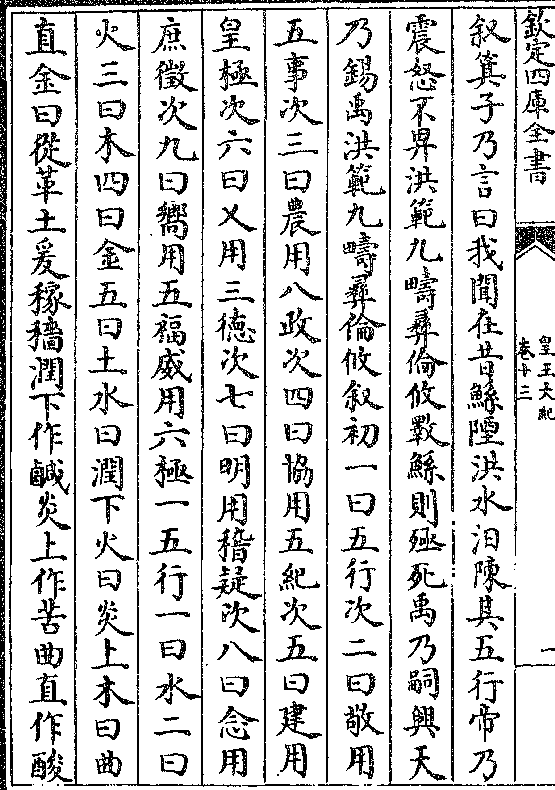 欽定四庫全書
皇王大紀
卷十三
一
叙箕子乃言曰我聞在昔鯀陻洪水汩陳其五行帝乃
震怒不畀洪範九疇彞倫攸斁鯀則殛死禹乃嗣興天
乃錫禹洪範九疇彞倫攸叙初一曰五行次二曰敬用
五事次三曰農用八政次四曰協用五紀次五曰建用
皇極次六曰乂用三徳次七曰明用稽疑次八曰念用
庶徵次九曰嚮用五福威用六極一五行一曰水二曰
火三曰木四曰金五曰土水曰潤下火曰炎上木曰曲
直金曰從革土爰稼穡潤下作鹹炎上作苦曲直作酸